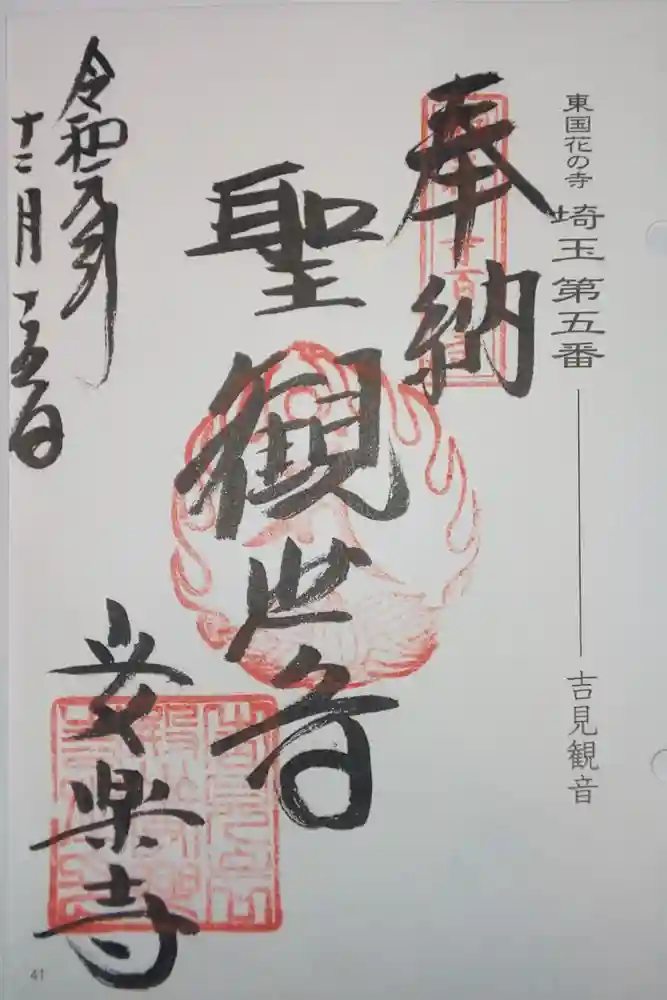 東国花の寺 埼玉第五番 吉見観音
奉納
聖観世音
安楽寺
令和元年
十二月一五日
41